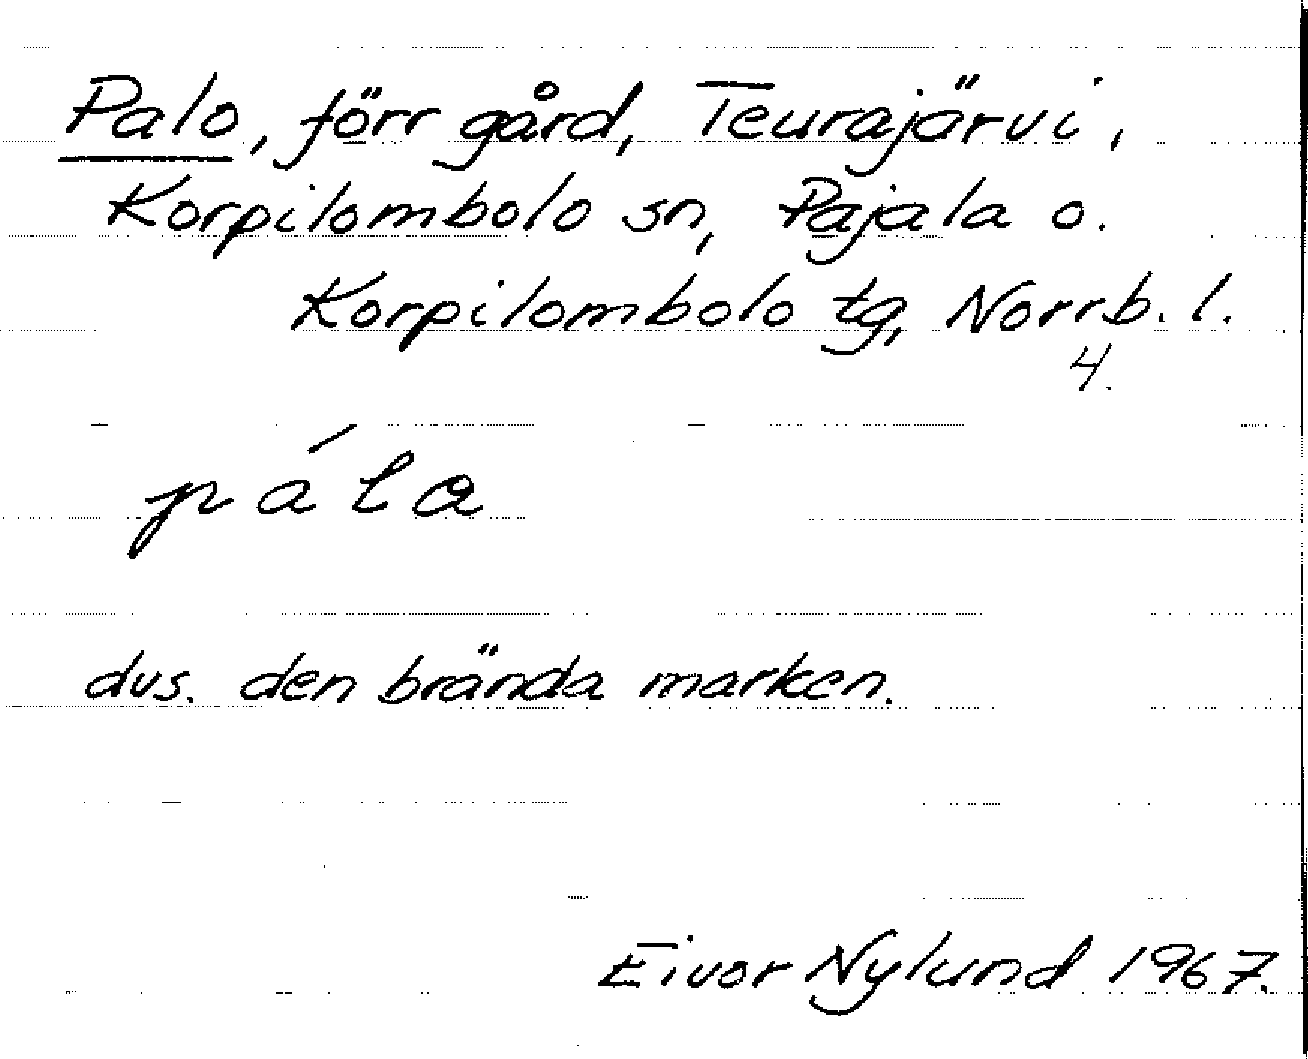 Palo, förr gård, Teurajärvi,
Korpilombolo sn, Pajala o.
Korpilombolo tg, Norrb. l.
4.
dvs. den brända marken.
Eivor Nylund 1967.